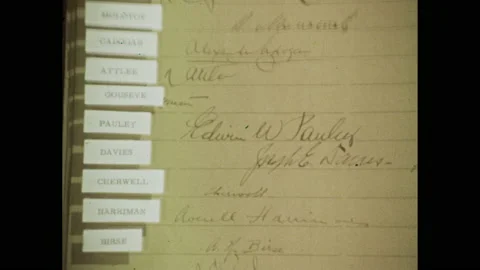 MOLOTOV
CADOGAN
Alexander Cadogan
ATTLEE
Attlee
GOUSEV
PAULEY
Edwin W Pauley
DAVIES
Joseph E Davies
CHERWELL
Cherwell
HARRIMAN
Averell Harriman
BIRSE
A H Birse